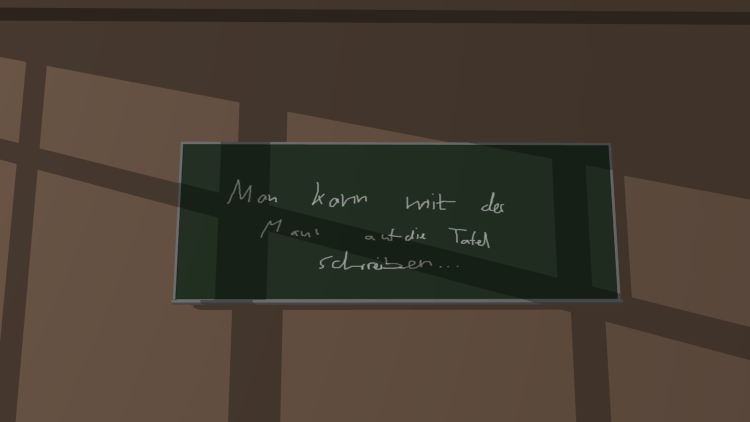 Man kann mit der
Maus auf die Tafel
schreiben...